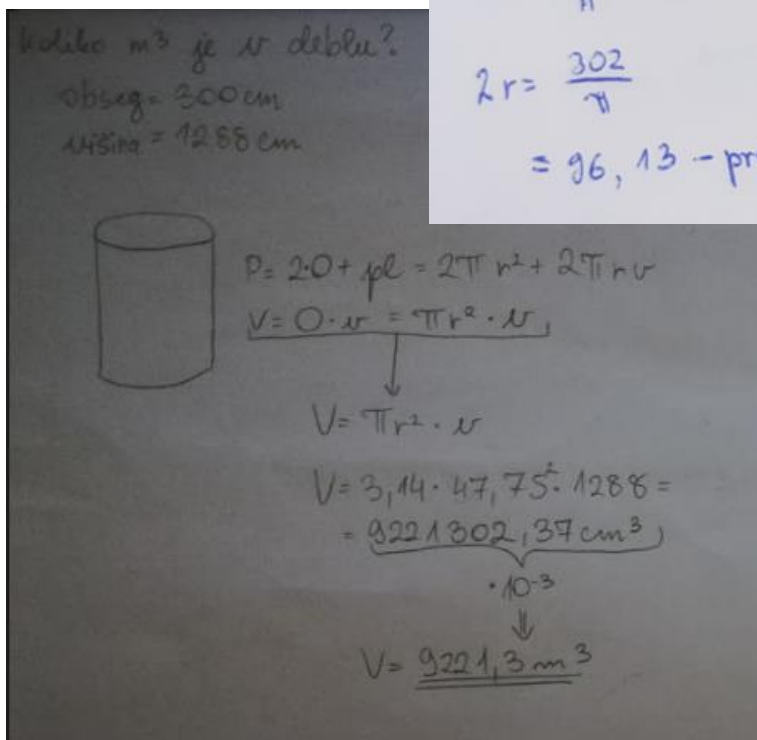 Koliko m³ je v deblu?
obseg = 300 cm
višina = 1288 cm
2r = 302/π
= 96,13 - pr
P = 2·O + pl = 2πr² + 2πrv
V = O·v = πr²·v
V = πr²·v
V = 3,14·47,75²·1288 =
= 9221302,37 cm³
·10⁻³
V = 9221,3 m³